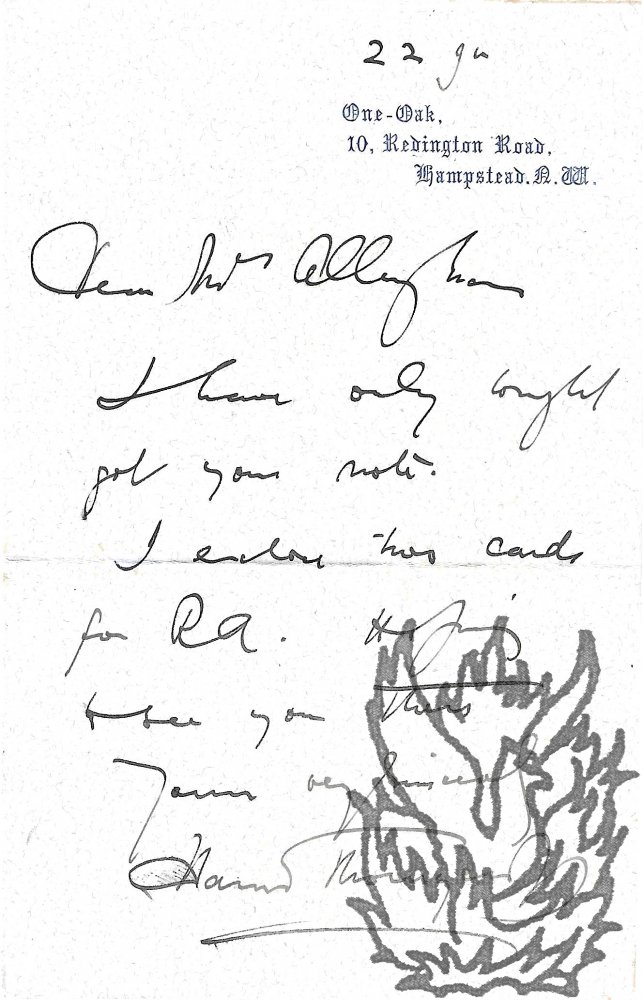 22 Ju
One-Oak,
10, Redington Road,
Hampstead. N. W.
Dear Mrs Allingham
I have only tonight
got your note.
I enclose two cards
for RA. Hoping
to see you there
Yours very sincerely